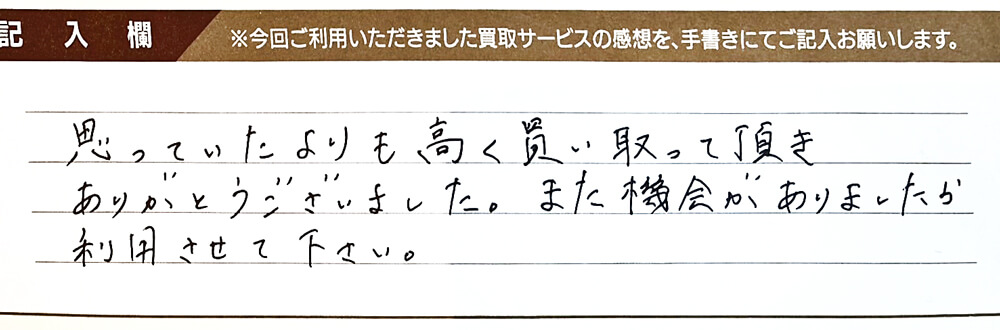 記入欄 ※今回ご利用いただきました買取サービスの感想を、手書きにてご記入お願いします。
思っていたよりも高く買い取って頂き
ありがとうございました。また機会がありましたら
利用させて下さい。